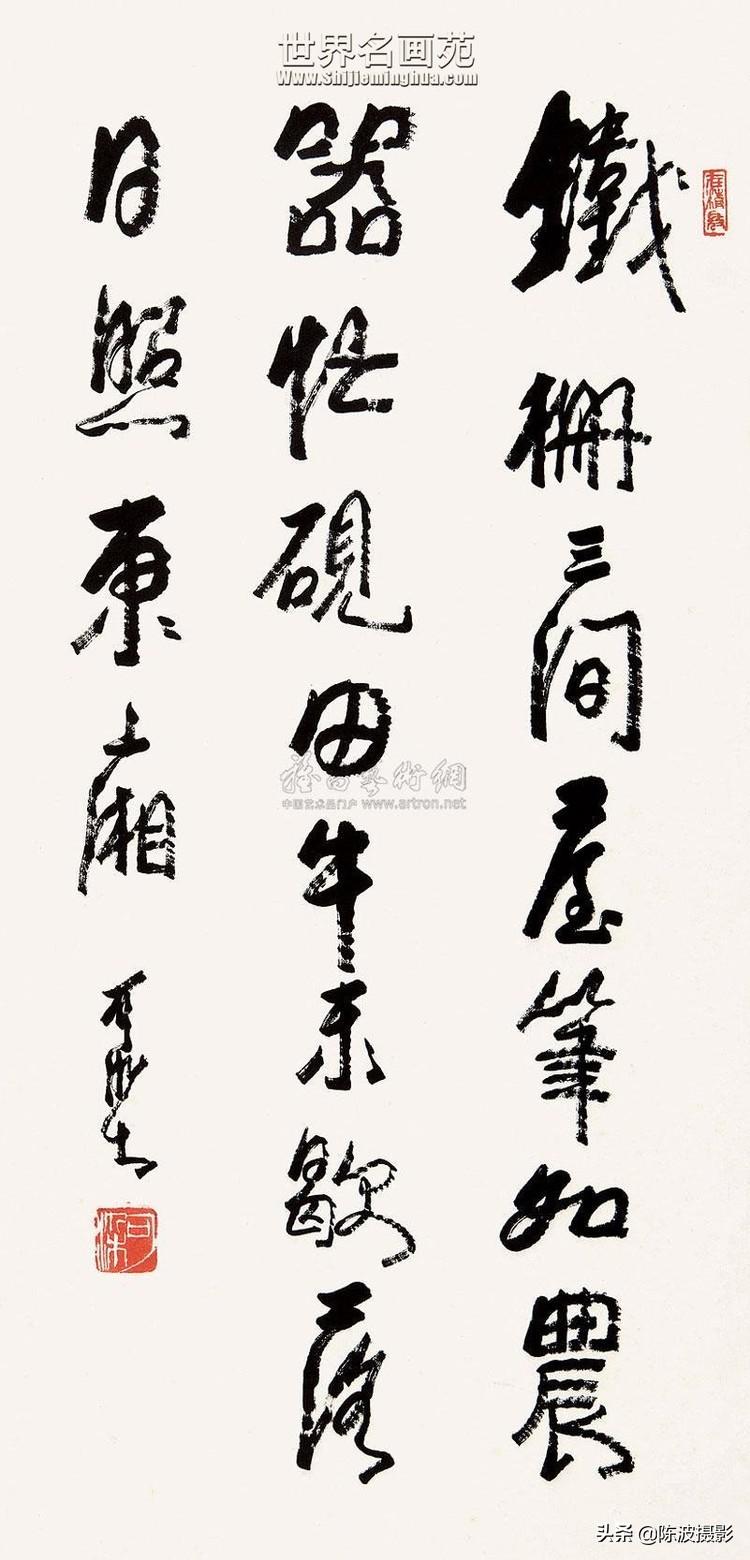 世界名画苑
Www.Shijieminghua.com
鐵柵三間屋筆如農
器忙硯田牛未歇落
日照東廂
可染
雅昌藝術網
中国艺术品门户 www.artron.net
头条 @陈波摄影